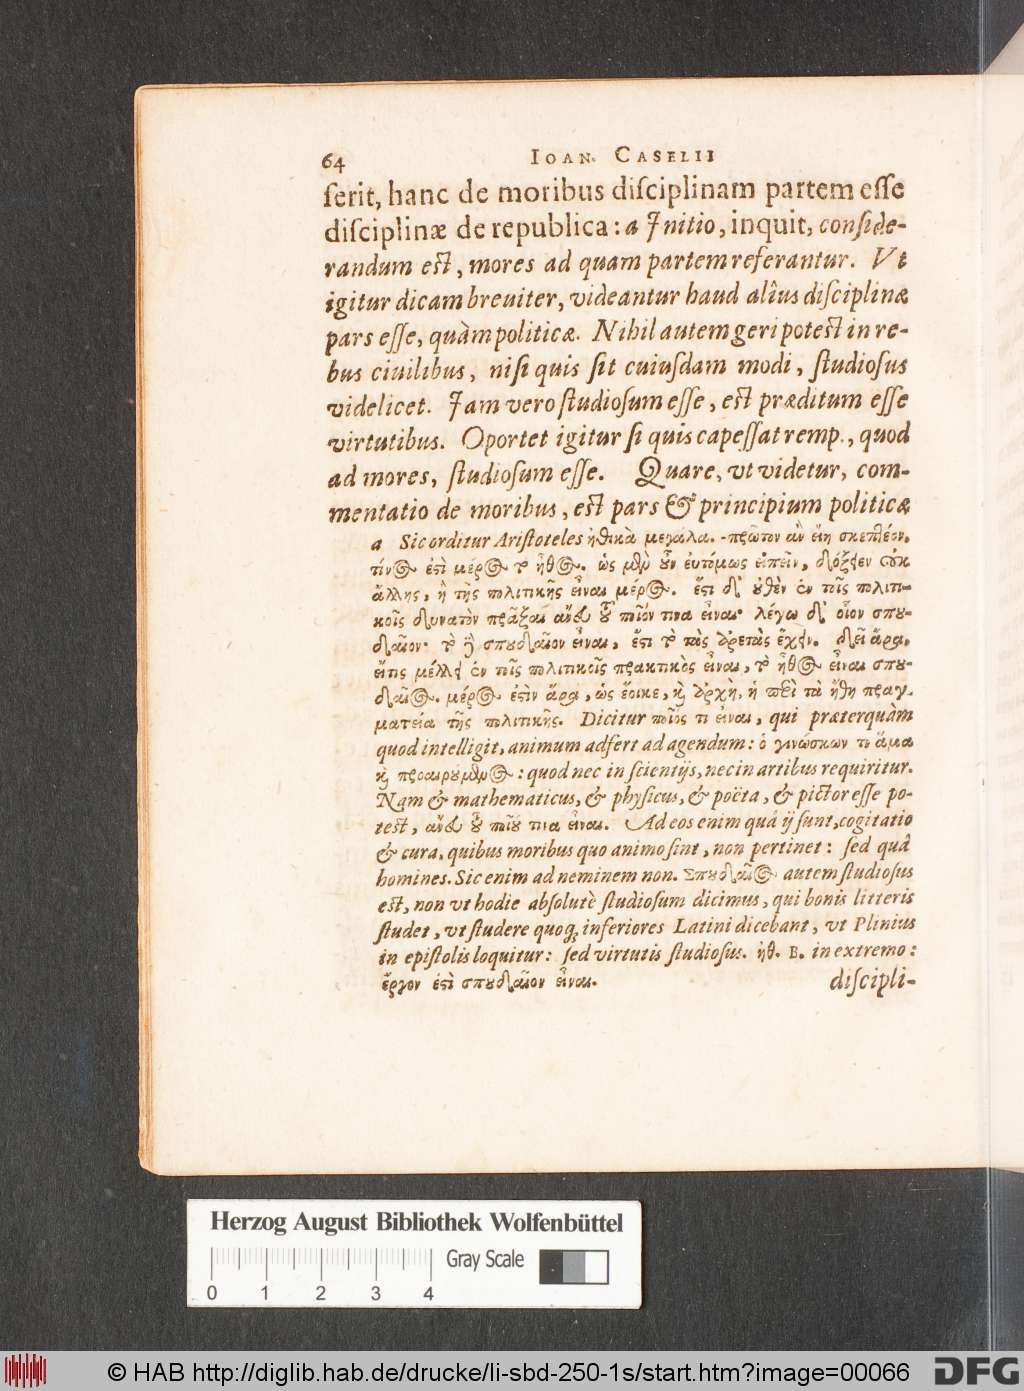 64 IOAN. CASELII
ſerit, hanc de moribus diſciplinam partem eſſe
diſciplinæ de republica: a Initio, inquit, conſide-
randum eſt, mores ad quam partem referantur. Vt
igitur dicam breuiter, videantur haud alîus diſciplinæ
pars eſſe, quàm politicæ. Nihil autem geri poteſt in re-
bus ciuilibus, niſi quis ſit cuiuſdam modi, ſtudioſus
videlicet. Jam vero ſtudioſum eſſe, eſt præditum eſſe
virtutibus. Oportet igitur ſi quis capeſſat remp., quod
ad mores, ſtudioſum eſſe. Quare, vt videtur, com-
mentatio de moribus, eſt pars & principium politicæ
a Sic orditur Ariſtoteles ἠθικὰ μεγάλα. -πρῶτον ἂν εἴη σκεπτέον,
τίνος ἐστὶ μέρος τὸ ἦθος. ὡς μὲν οὖν συντόμως εἰπεῖν, δόξειεν οὐκ
ἄλλης, ἢ τῆς πολιτικῆς εἶναι μέρος. ἔστι δ' οὐθὲν ἐν τοῖς πολιτι-
κοῖς δυνατὸν πρᾶξαι ἄνευ τοῦ ποῖόν τινα εἶναι· λέγω δ' οἷον σπου-
δαῖον· τὸ δὲ σπουδαῖον εἶναι, ἔστι τὸ τὰς ἀρετὰς ἔχειν. δεῖ ἄρα,
εἴτις μέλλει ἐν τοῖς πολιτικοῖς πρακτικὸς εἶναι, τὸ ἦθος εἶναι σπου-
δαῖος. μέρος ἐστὶν ἄρα, ὡς ἔοικε, καὶ ἀρχὴ, ἡ περὶ τὰ ἤθη πραγ-
ματεία τῆς πολιτικῆς. Dicitur ποῖός τι εἶναι, qui præterquàm
quod intelligit, animum adfert ad agendum: ὁ γινώσκων τι ἅμα
καὶ προαιρούμενος: quod nec in ſcientijs, nec in artibus requiritur.
Nam & mathematicus, & phyſicus, & poëta, & pictor eſſe po-
teſt, ἄνευ τοῦ ποῖόν τινα εἶναι. Ad eos enim quâ ij ſunt, cogitatio
& cura, quibus moribus quo animo ſint, non pertinet: ſed quâ
homines. Sic enim ad neminem non. Σπουδαῖος autem ſtudioſus
eſt, non vt hodie abſolutè ſtudioſum dicimus, qui bonis litteris
ſtudet, vt ſtudere quoq; inferiores Latini dicebant, vt Plinius
in epiſtolis loquitur: ſed virtutis ſtudioſus. ἠθ. Β. in extremo:
ἔργον ἐστὶ σπουδαῖον εἶναι. diſcipli-
Herzog August Bibliothek Wolfenbüttel
Gray Scale
0 1 2 3 4
© HAB http://diglib.hab.de/drucke/li-sbd-250-1s/start.htm?image=00066 DFG